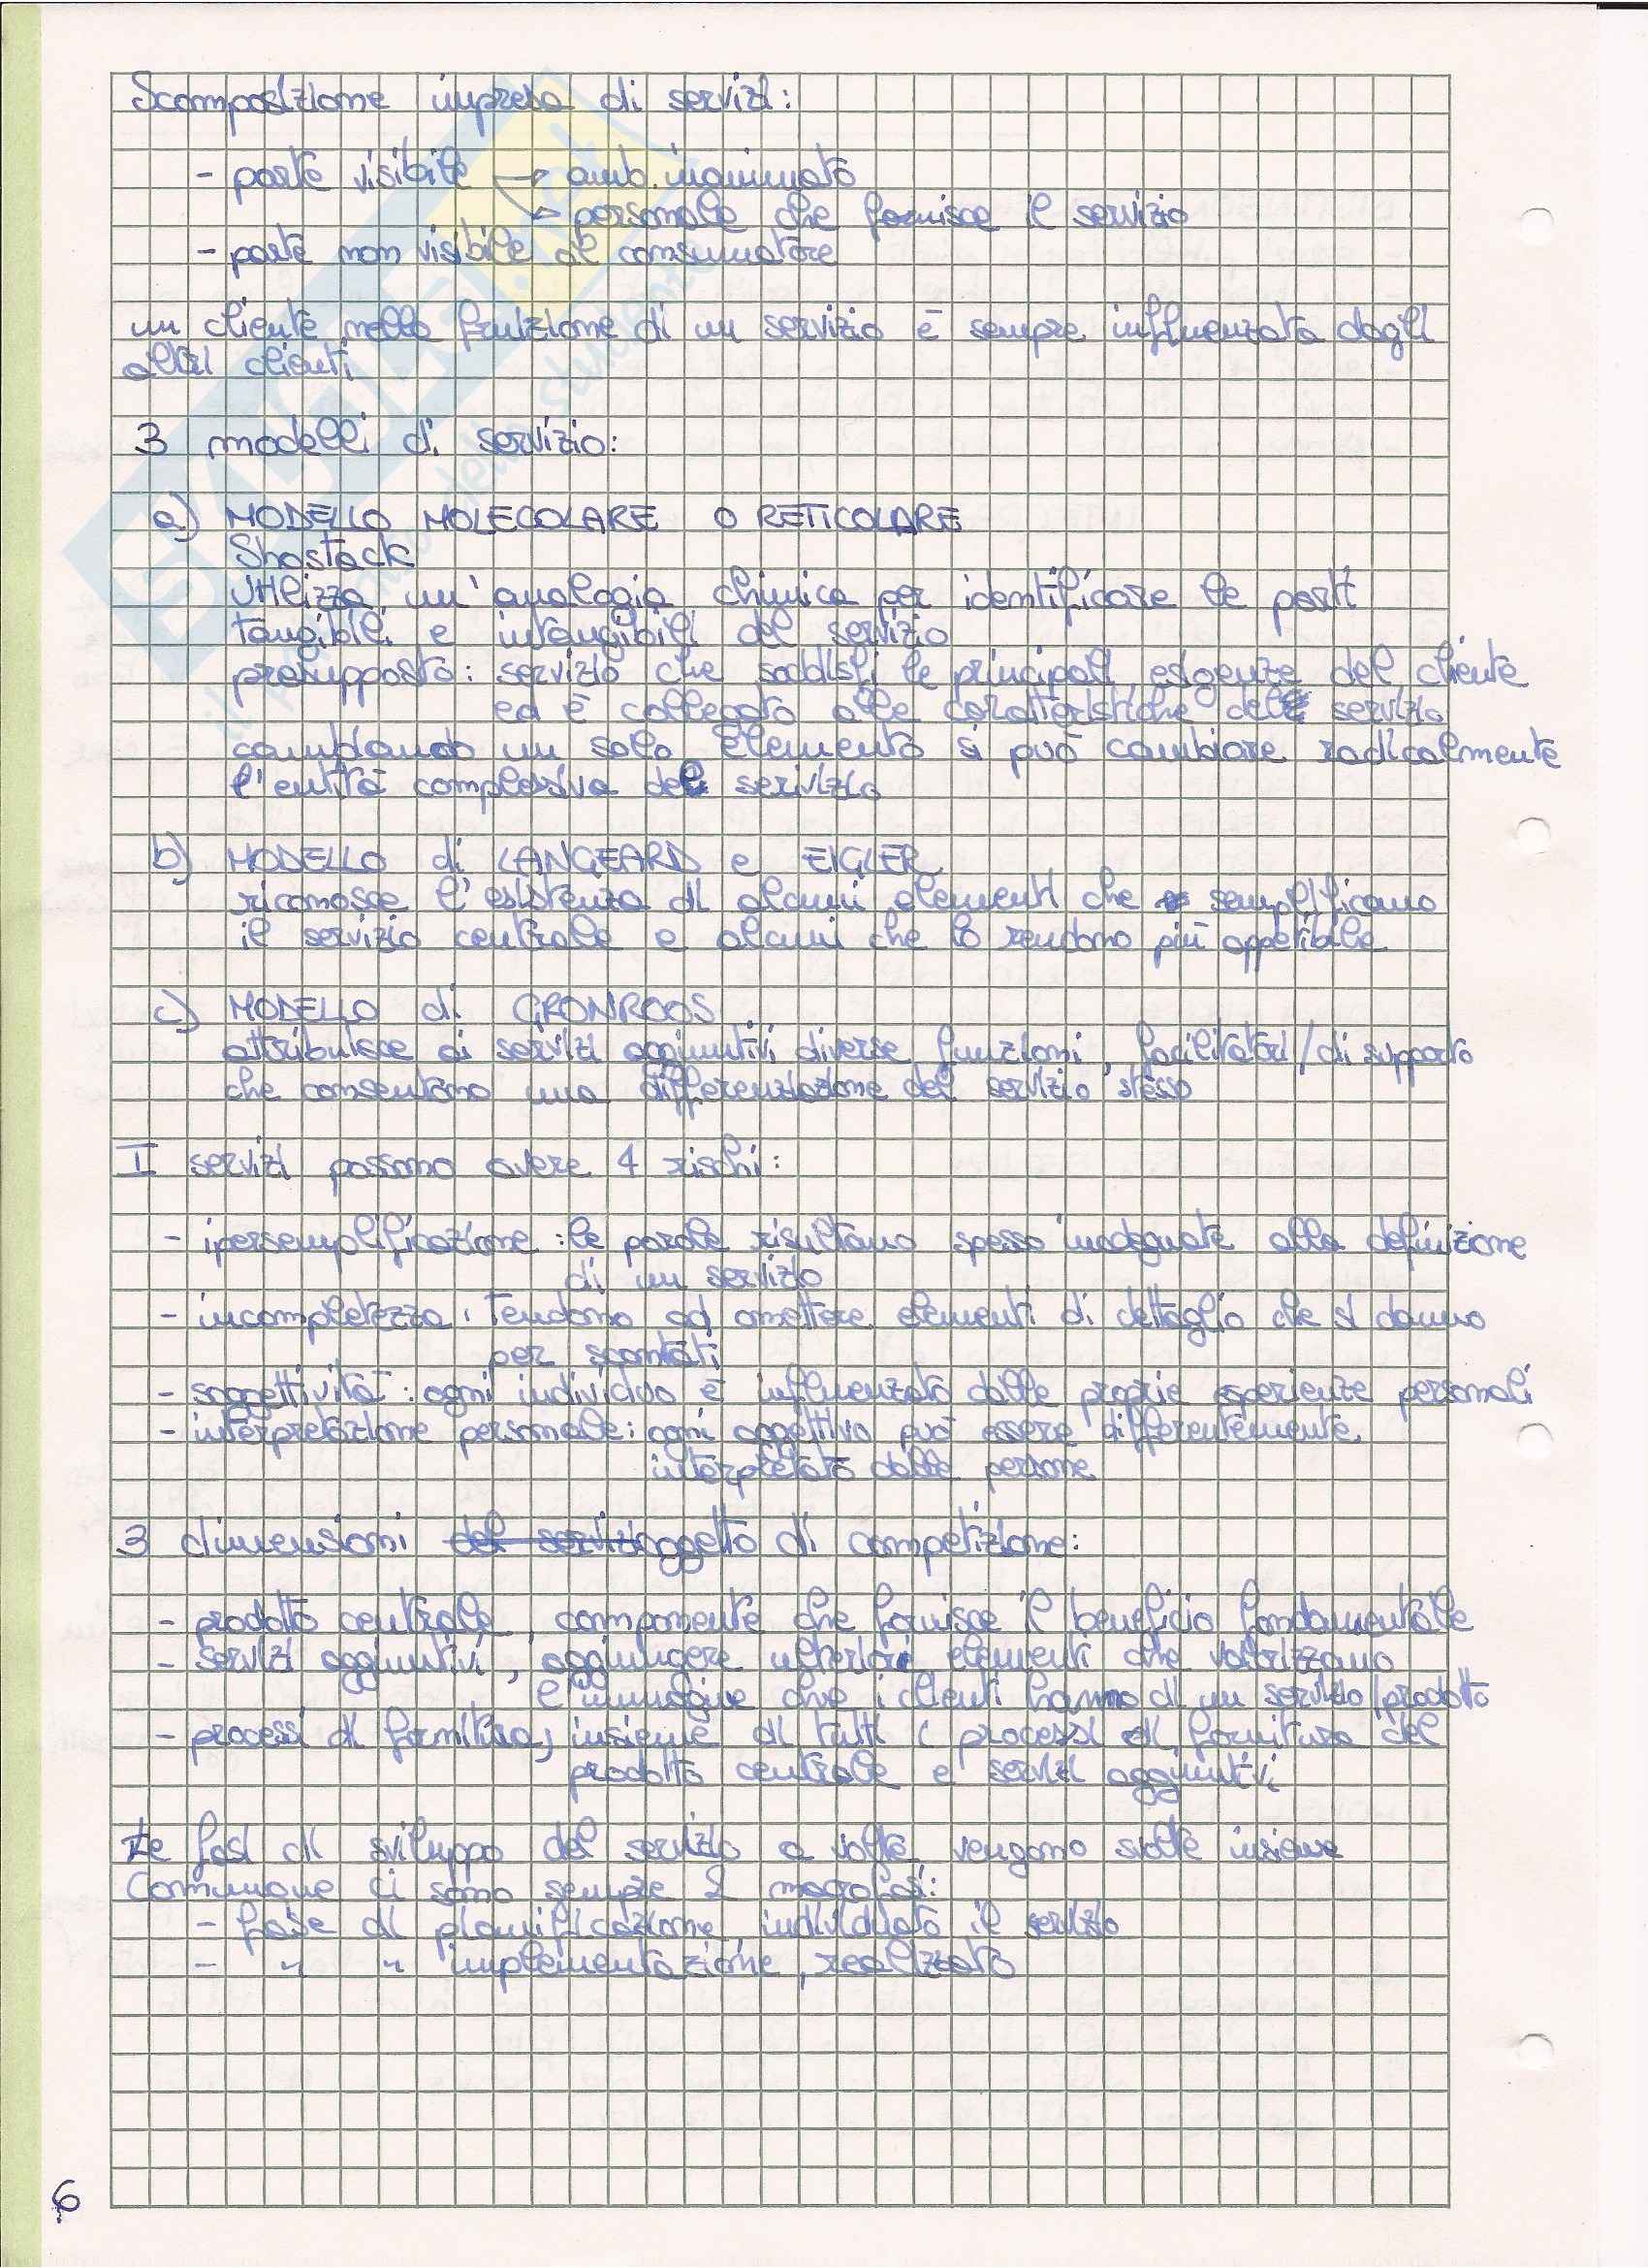 Scomposizione impresa di servizi:
- parte visibile → amb. inanimato
→ personale che fornisce il servizio
- parte non visibile al consumatore
un cliente nella fruizione di un servizio è sempre influenzato dagli
altri clienti
3 modelli di servizio:
a) MODELLO MOLECOLARE O RETICOLARE
Shostack
Utilizza un'analogia chimica per identificare le parti
tangibili e intangibili del servizio
presupposto: servizio che soddisfi le principali esigenze del cliente
ed è collegato alle caratteristiche del servizio
cambiando un solo elemento si può cambiare radicalmente
l'entità complessiva del serivizio
b) MODELLO di LANGEARD e EIGLER
riconosce l'esistenza di alcuni elementi che semplificano
il servizio centrale e alcuni che lo rendono più appetibile
c) MODELLO di GRONROOS
attribuisce ai servizi aggiuntivi diverse funzioni, facilitatori/di supporto
che consentono una differenziazione del servizio stesso
I servizi possono avere 4 rischi:
- ipersemplificazione: le parole risultano spesso inadeguate alla definizione
di un servizio
- incompletezza: tendono ad omettere elementi di dettaglio che si danno
per scontati
- soggettività: ogni individuo è influenzato dalle proprie esperienze personali
- interpretazione personale: ogni aggettivo può essere differentemente
interpretato dalle persone
3 dimensioni del servizio oggetto di competizione:
- prodotto centrale, componente che fornisce il beneficio fondamentale
- servizi aggiuntivi, aggiungere ulteriori elementi che valorizzano
l'immagine che i clienti hanno di un servizio/prodotto
- processi di fornitura, insieme di tutti i processi di fornitura del
prodotto centrale e servizi aggiuntivi
Le fasi di sviluppo del servizio a volte vengono svolte insieme
Comunque ci sono sempre 2 macrofasi:
- fase di pianificazione, individuato il servizio
- " " implementazione, realizzato
6